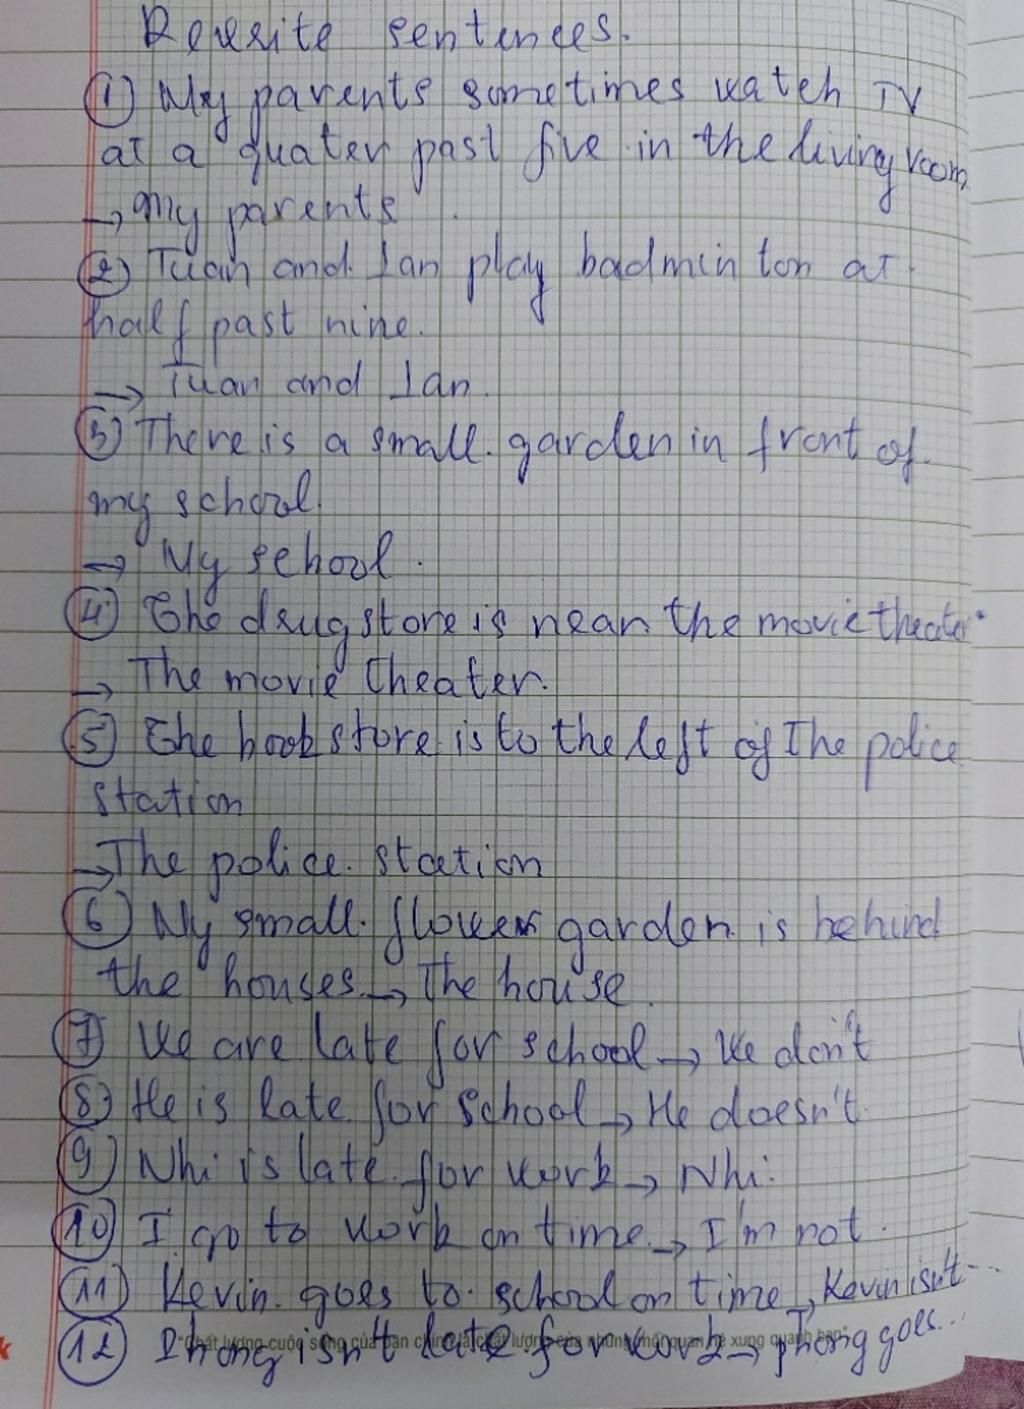 Rewrite sentences.
① My parents sometimes watch TV
at a quater past five in the living room
→ My parents
② Tuan and Lan play badminton at
half past nine.
→ Tuan and Lan.
③ There is a small garden in front of
my school.
→ My school.
④ The drugstore is near the movie theater.
→ The movie theater.
⑤ The bookstore is to the left of The police
station
→ The police station
⑥ My small flower garden is behind
the houses. → The house.
⑦ We are late for school → We don't
⑧ He is late for school → He doesn't.
⑨ Nhi is late for work → Nhi.
⑩ I go to work on time. → I'm not.
⑪ Kevin goes to school on time → Kevin isn't...
⑫ Phong isn't late for work → Phong goes...
"Chất lượng cuộc sống của bạn chính là chất lượng của những mối quan hệ xung quanh bạn"
k